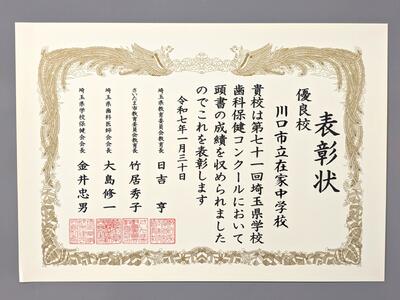 表彰状
優良校
川口市立在家中学校
貴校は第七十一回埼玉県学校
歯科保健コンクールにおいて
頭書の成績を収められました
のでこれを表彰します
令和七年一月三十日
埼玉県教育委員会教育長 日吉亨
さいたま市教育委員会教育長 竹居秀子
埼玉県歯科医師会会長 大島修一
埼玉県学校保健会会長 金井忠男